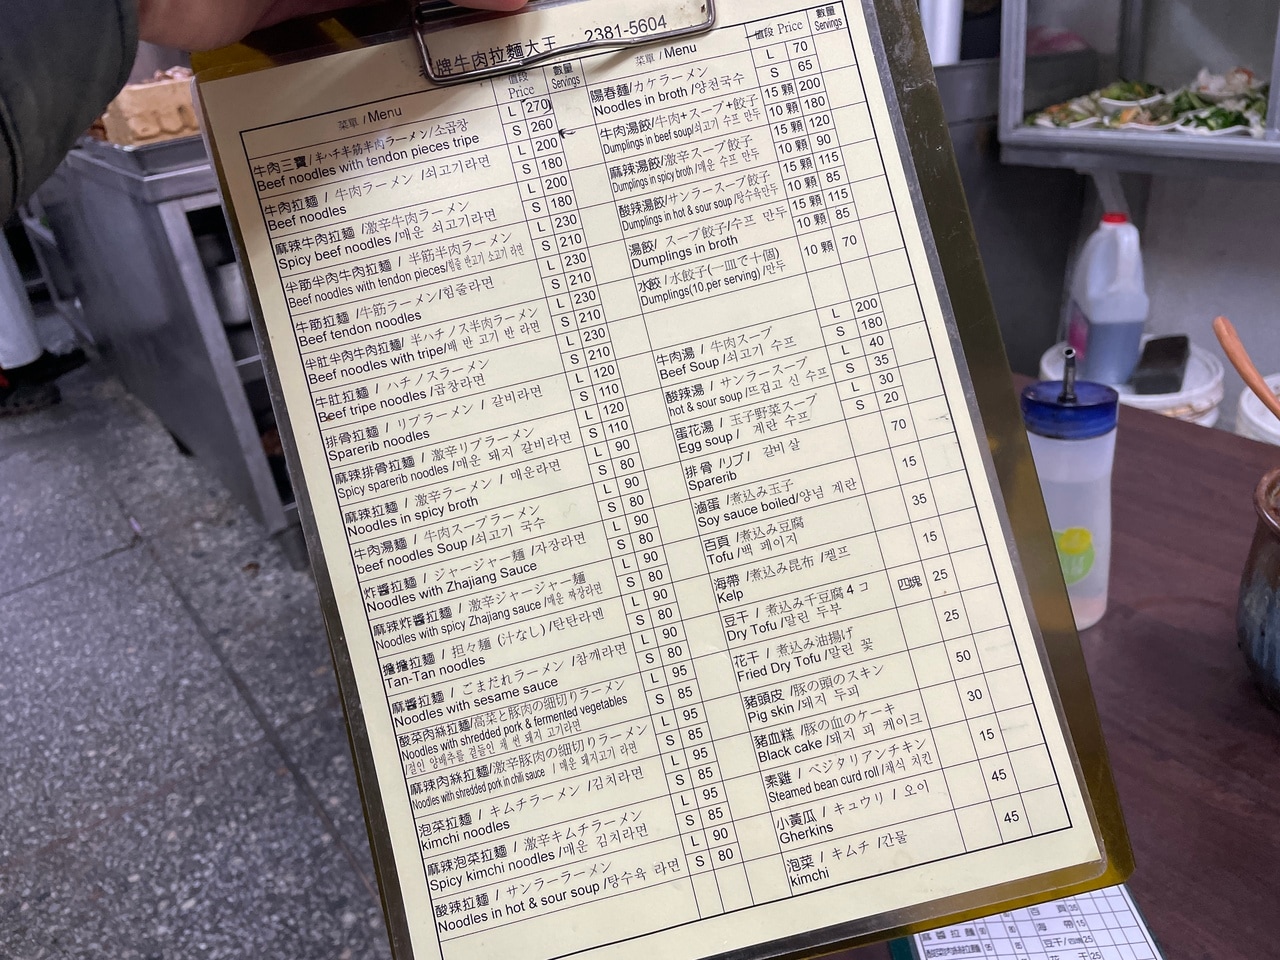 牌牛肉拉麵大王 2381-5604
菜單 / Menu
值段 Price
數量 Servings
牛肉三寶/半ハチ半筋半肉ラーメン/소곱창
Beef noodles with tendon pieces tripe
L 270
S 260
牛肉拉麵 / 牛肉ラーメン /쇠고기라면
Beef noodles
L 200
S 180
麻辣牛肉拉麵 /激辛牛肉ラーメン
Spicy beef noodles /매운 쇠고기라면
L 200
S 180
半筋半肉牛肉拉麵 / 半筋半肉ラーメン
Beef noodles with tendon pieces/힘줄 반고기 소고기 라면
L 230
S 210
牛筋拉麵 /牛筋ラーメン/힘줄라면
Beef tendon noodles
L 230
S 210
半肚半肉牛肉拉麵/ 半ハチノス半肉ラーメン
Beef noodles with tripe/배 반 고기 반 라면
L 230
S 210
牛肚拉麵 / ハチノスラーメン
Beef tripe noodles /곱창라면
L 230
S 210
排骨拉麵 / リブラーメン / 갈비라면
Sparerib noodles
L 120
S 110
麻辣排骨拉麵 / 激辛リブラーメン
Spicy sparerib noodles /매운 돼지 갈비라면
L 120
S 110
麻辣拉麵 / 激辛ラーメン / 매운라면
Noodles in spicy broth
L 90
S 80
牛肉湯麵 / 牛肉スープラーメン
beef noodles Soup /쇠고기 국수
L 90
S 80
炸醬拉麵 / ジャージャー麺 /자장라면
Noodles with Zhajiang Sauce
L 90
S 80
麻辣炸醬拉麵 / 激辛ジャージャー麺
Noodles with spicy Zhajiang sauce /매운 짜장라면
L 90
S 80
擔擔拉麵 / 担々麺 (汁なし) /탄탄라멘
Tan-Tan noodles
L 90
S 80
麻醬拉麵 / ごまだれラーメン /참깨라면
Noodles with sesame sauce
L 90
S 80
酸菜肉絲拉麵/高菜と豚肉の細切りラーメン
Noodles with shredded pork & fermented vegetables
/절인 양배추를 곁들인 채 썬 돼지 고기라면
L 95
S 85
麻辣肉絲拉麵/激辛豚肉の細切りラーメン
Noodles with shredded pork in chili sauce / 매운 돼지고기 라면
L 95
S 85
泡菜拉麵 / キムチラーメン /김치라면
kimchi noodles
L 95
S 85
麻辣泡菜拉麵 / 激辛キムチラーメン
Spicy kimchi noodles /매운 김치라면
L 95
S 85
酸辣拉麵 / サンラーラーメン
Noodles in hot & sour soup /탕수육 라면
L 90
S 80
菜單 / Menu
值段 Price
數量 Servings
陽春麵/カケラーメン
Noodles in broth /양천국수
L 70
S 65
牛肉湯餃/牛肉+スープ+餃子
Dumplings in beef soup/쇠고기 수프 만두
15 顆 200
10 顆 180
麻辣湯餃/激辛スープ餃子
Dumplings in spicy broth /매운 수프 만두
15 顆 120
10 顆 90
酸辣湯餃/サンラースープ餃子
Dumplings in hot & sour soup /탕수육만두
15 顆 115
10 顆 85
湯餃/ スープ餃子/수프 만두
Dumplings in broth
15 顆 115
10 顆 85
水餃 /水餃子(一皿で十個)
Dumplings(10 per serving) /만두
10 顆 70
牛肉湯 / 牛肉スープ
Beef Soup /쇠고기 수프
L 200
S 180
酸辣湯 / サンラースープ
hot & sour soup /뜨겁고 신 수프
L 40
S 35
蛋花湯 / 玉子野菜スープ
Egg soup / 계란 수프
L 30
S 20
排骨 /リブ/ 갈비 살
Sparerib
70
滷蛋 /煮込み玉子
Soy sauce boiled/양념 계란
15
百頁 /煮込み豆腐
Tofu /백 페이지
35
海帶 /煮込み昆布 /켈프
Kelp
15
豆干 / 煮込み干豆腐4コ
Dry Tofu /말린 두부
四塊 25
花干 / 煮込み油揚げ
Fried Dry Tofu /말린 꽃
25
豬頭皮 /豚の頭のスキン
Pig skin /돼지 두피
50
豬血糕 /豚の血のケーキ
Black cake /돼지 피 케이크
30
素雞 / ベジタリアンチキン
Steamed bean curd roll /채식 치킨
15
小黃瓜 / キュウリ / 오이
Gherkins
45
泡菜 / キムチ /간물
kimchi
45
百 頁 35
麻 醬 拉 麵
海 帶 15
酸菜肉絲拉麵
豆干/四塊 25
花 干 25